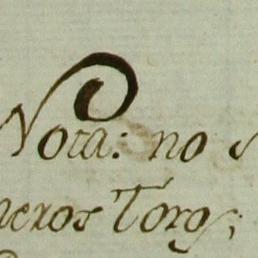 Nota: no s
neros Toros;